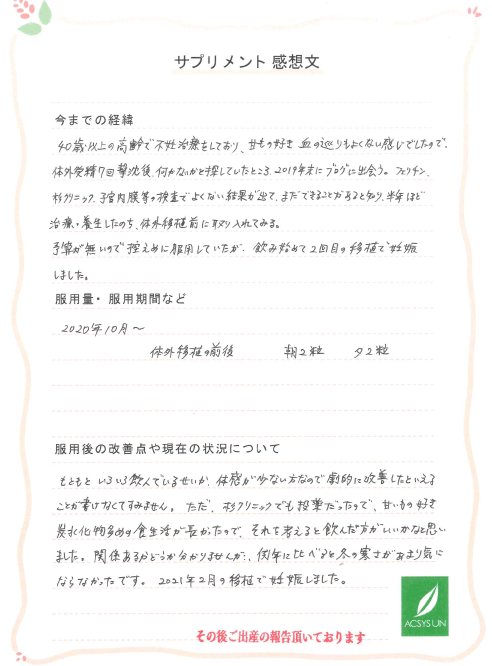 サプリメント 感想文
今までの経緯
40歳以上の高齢で不妊治療をしており、甘もの好き 血の巡りもよくない感じでしたので、
体外受精7回撃沈後、何かないかと探していたところ、2019年末にブログに出会う。フェリチン、
杉クリニック、子宮内膜等の検査でよくない結果が出て、まだできることがあると知り、半年ほど
治療・養生したのち、体外移植前に取り入れてみる。
予算が無いので控えめに服用していたが、飲み始めて2回目の移植で妊娠
しました。
服用量・服用期間など
2020年10月〜
体外移植の前後 朝2粒 夕2粒
服用後の改善点や現在の状況について
もともと いろいろ飲んでいるせいか、体感が少ない方なので劇的に改善したといえる
ことが書けなくてすみません。ただ、杉クリニックでも投薬だったので、甘いもの好き
炭水化物多めの食生活が長かったので、それを考えると飲んだ方がいいかなと思い
ました。関係あるかどうか分かりませんが、例年に比べると冬の寒さがあまり気に
ならなかったです。2021年2月の移植で妊娠しました。
ACSYSUN
その後ご出産の報告頂いております